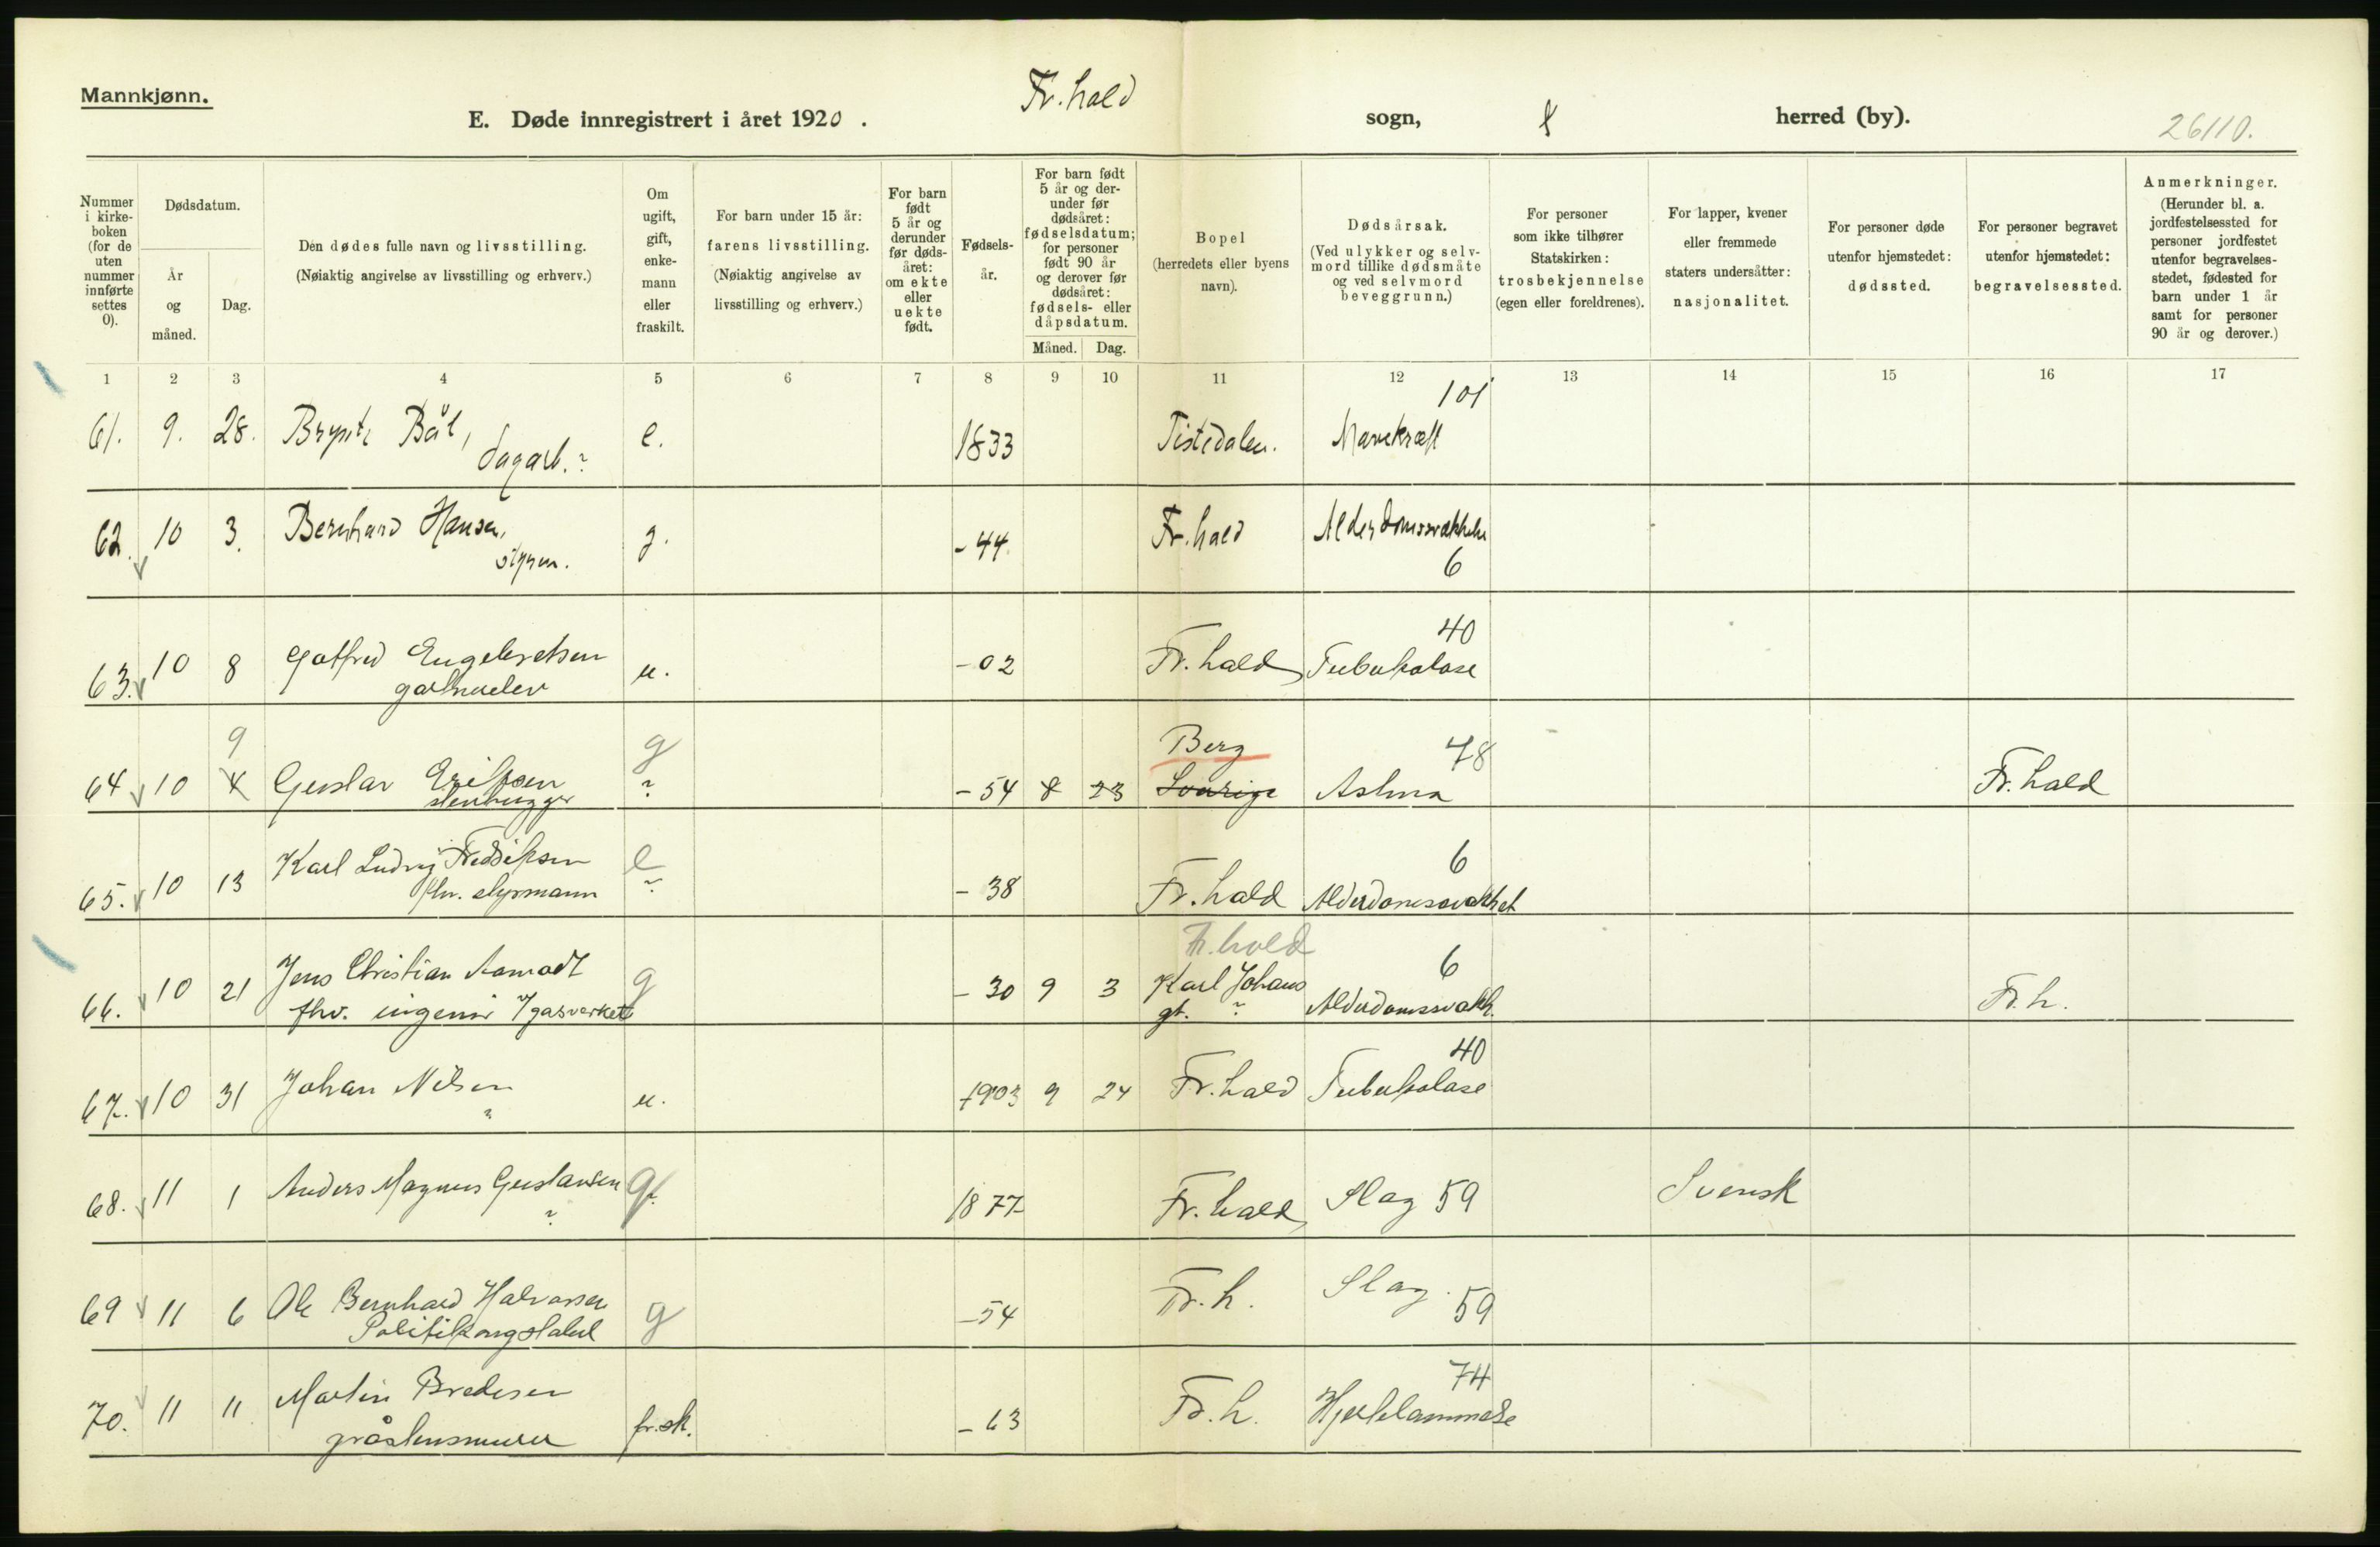 Mannkjønn.
E. Døde innregistrert i året 1920. Fr.hald sogn, herred (by). 26110.
Nummer i kirkeboken (for de uten nummer innførte settes 0).
Dødsdatum.
År og måned.
Dag.
Den dødes fulle navn og livsstilling.
(Nøiaktig angivelse av livsstilling og erhverv.)
Om ugift, gift, enkemann eller fraskilt.
For barn under 15 år:
farens livsstilling.
(Nøiaktig angivelse av livsstilling og erhverv.)
For barn født 5 år og derunder før dødsåret: om ekte eller uekte født.
Fødselsår.
For barn født 5 år og derunder før dødsåret: fødselsdatum; for personer født 90 år og derover før dødsåret: fødsels- eller dåpsdatum.
Måned. Dag.
Bopel
(herredets eller byens navn).
Dødsårsak.
(Ved ulykker og selvmord tillike dødsmåte og ved selvmord beveggrunn.)
For personer som ikke tilhører Statskirken: trosbekjennelse (egen eller foreldrenes).
For lapper, kvener eller fremmede staters undersåtter: nasjonalitet.
For personer døde utenfor hjemstedet: dødssted.
For personer begravet utenfor hjemstedet: begravelsessted.
Anmerkninger.
(Herunder bl. a. jordfestelsessted for personer jordfestet utenfor begravelsesstedet, fødested for barn under 1 år samt for personer 90 år og derover.)
1 2 3 4 5 6 7 8 9 10 11 12 13 14 15 16 17
101
61. 9. 28. Båt, e. 1833 Tistedalen. Mavekræft
dagarb. ?
62. 10 3. Bernhard Hansen, g. -44. Fr.hald Alderdomssvækkelse
6
40
63. 10 8 Gotfred Engebretsen u. -02 Fr.hald Tuberkolose
9 g Berg 78
64 10 4 Gustav Eriksen ? -54 8 23 Sverige Astma Fr.hald
stenhugger
6
65. 10 13 Karl Ludvig Fredriksen e ? -38 Fr.hald Alderdomssvakhet
fhv. styrmann
Fr.hald 6
66. 10 21 Jens Christian Aamodt g -30 9 3 Karl Johans Alderdomssvakh. Fr.h.
fhv. ingeniør v/gasverket gt. ?
40
67. 10 31 Johan Nilsen u. 1903 9 24 Fr.hald Tuberkolose
?
68. 11 1 Anders Magnus Gustavsen g. 1877 Fr.hald Slag 59 Svensk
?
69 11 6 Ole Bernhard Halvorsen g -54 Fr.h. Slag. 59
Politikonstabel
74
70. 11 11 Martin Bredesen fr.sk. -63 Fr.h. Hjertelammelse
gråstensmurer